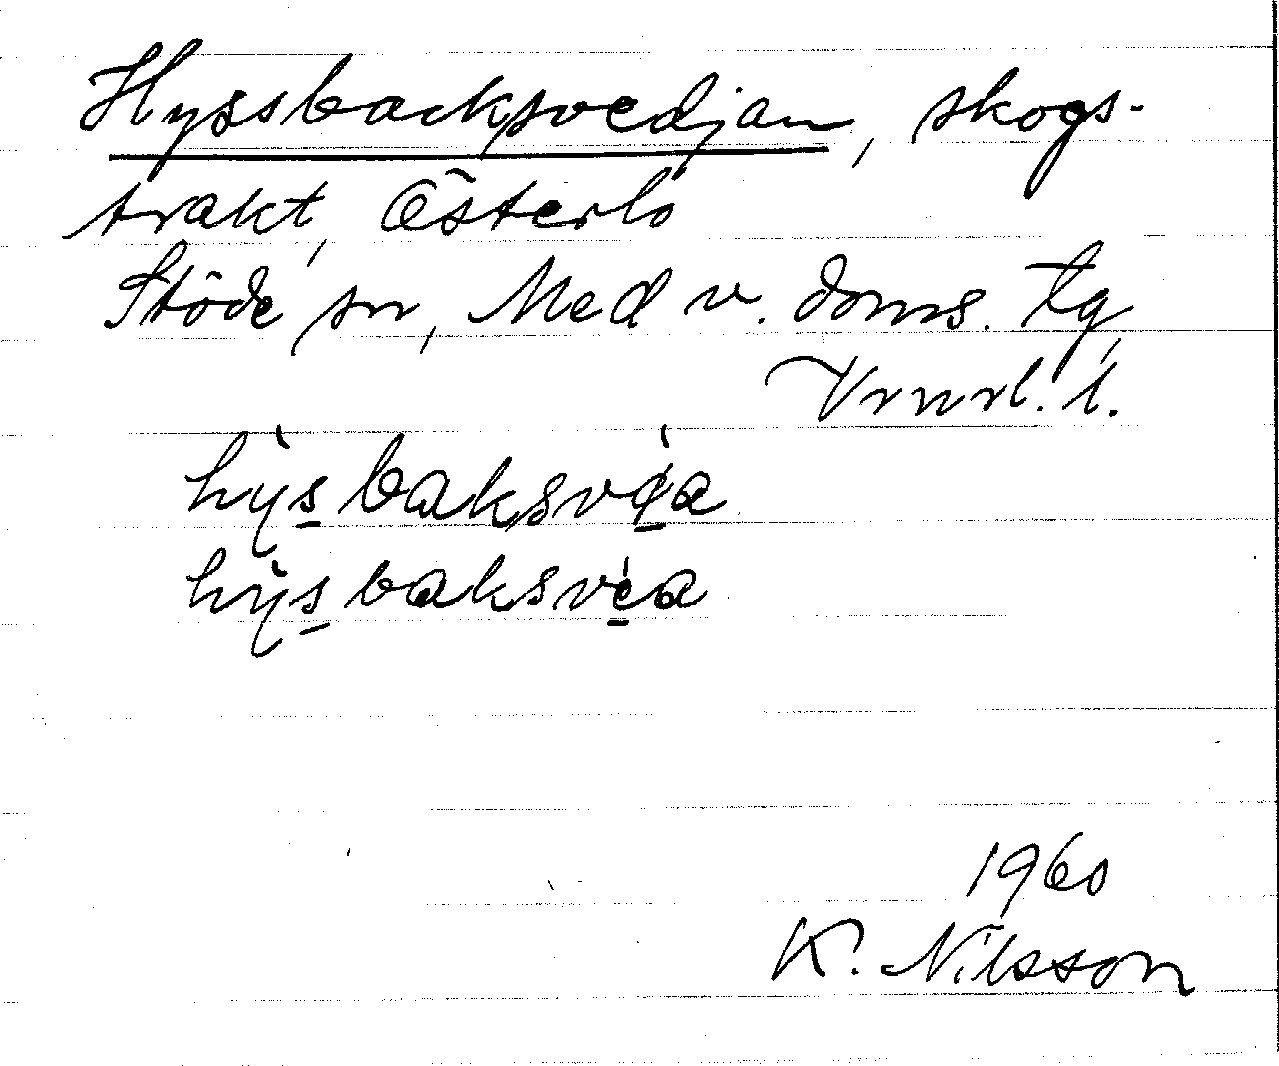 Hyssbacksvedjan, skogs-
trakt, Österlö
Stöde sn, Med v. doms. tg,
Vrnrl. l.
hỳs baksvèa
hỳs baksvéa
1960
K. Nilsson